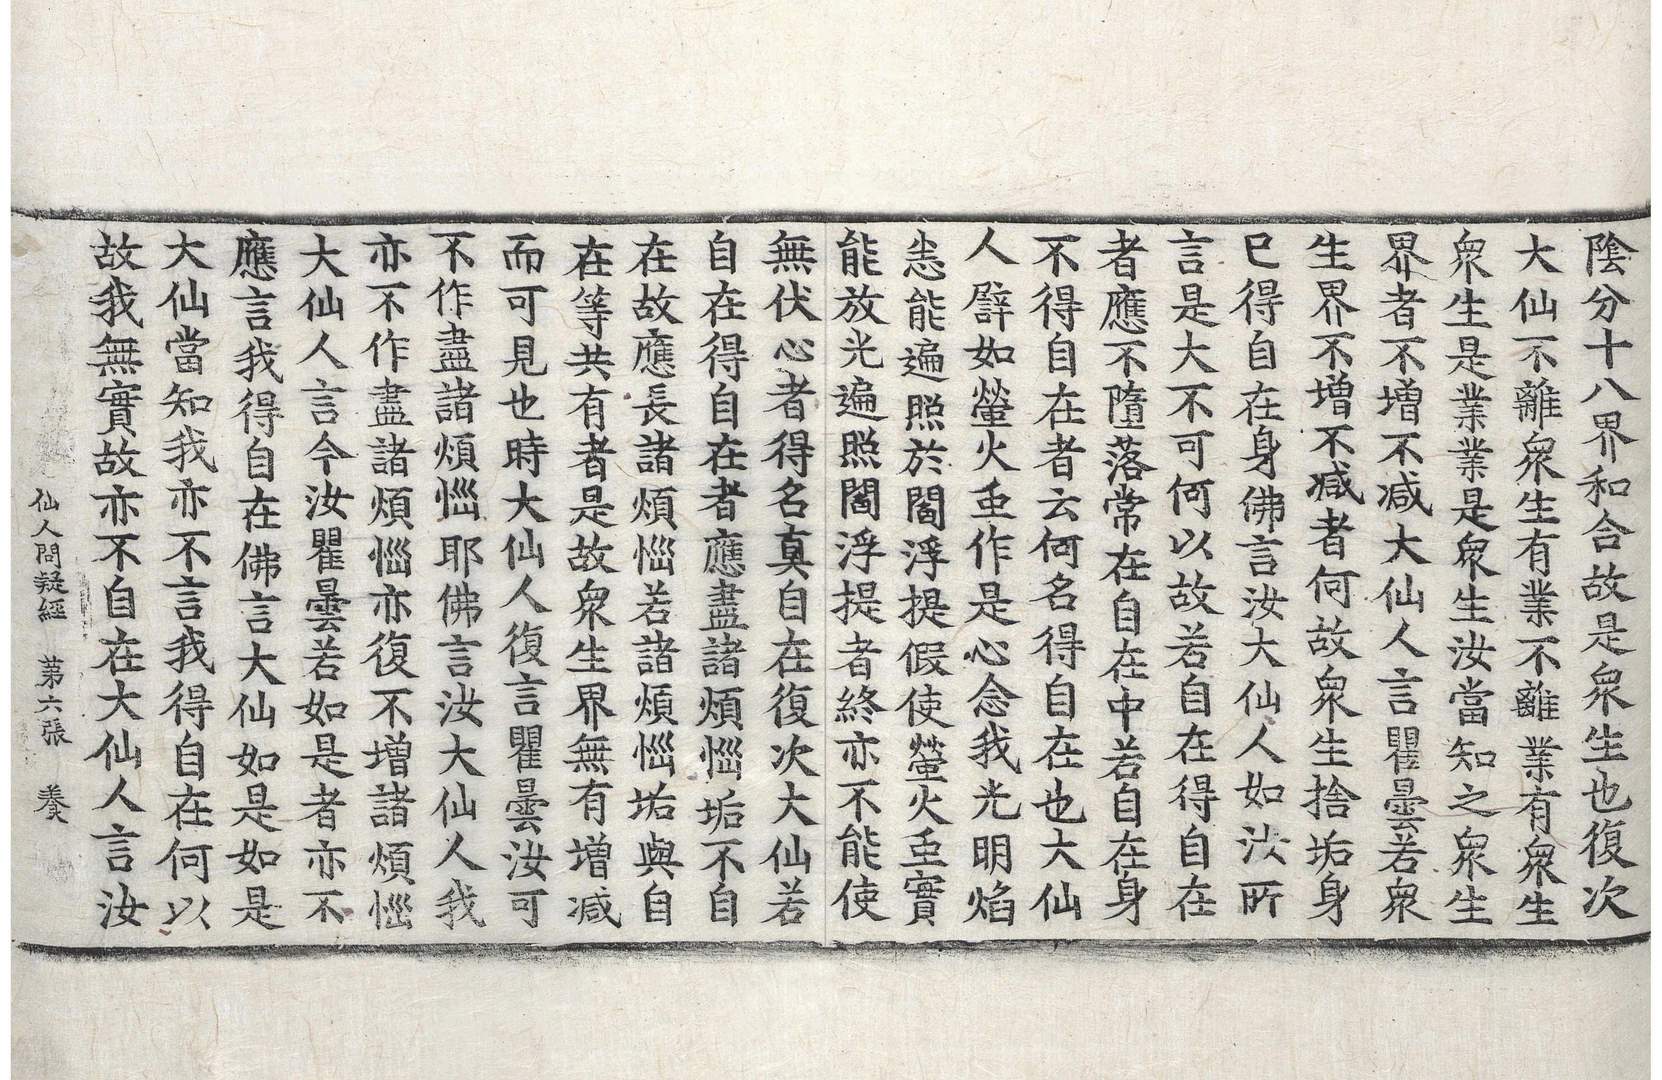 陰分十八界和合故是衆生也復次
大仙不離衆生有業不離業有衆生
衆生是業業是衆生汝當知之衆生
界者不增不减大仙人言瞿曇若衆
生界不增不减者何故衆生捨垢身
已得自在身佛言汝大仙人如汝所
言是大不可何以故若自在得自在
者應不墮落常在自在中若自在身
不得自在者云何名得自在也大仙
人辟如螢火虫作是心念我光明焰
恚能遍照於閻浮提假使螢火虫實
能放光遍照閻浮提者終亦不能使
無伏心者得名真自在復次大仙若
自在得自在者應盡諸煩惱垢不自
在故應長諸煩惱若諸煩惱垢與自
在等共有者是故衆生界無有增减
而可見也時大仙人復言瞿曇汝可
不作盡諸煩惱耶佛言汝大仙人我
亦不作盡諸煩惱亦復不增諸煩惱
大仙人言今汝瞿曇若如是者亦不
應言我得自在佛言大仙如是如是
大仙當知我亦不言我得自在何以
故我無實故亦不自在大仙人言汝
仙人問疑經 第六張 養